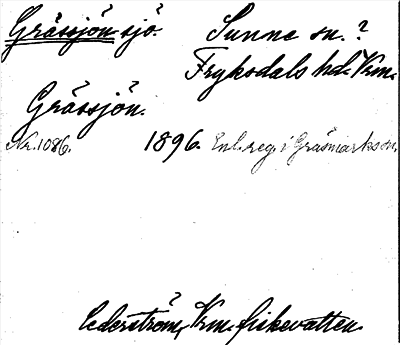 Grässjön sjö. Sunne sn.?
Fryksdals hd. Vrm.
Grässjön.
Nr. 1086. 1896. Enl. reg. i Gräsmarks sn.
Cederström, Vrm. fiskevatten.